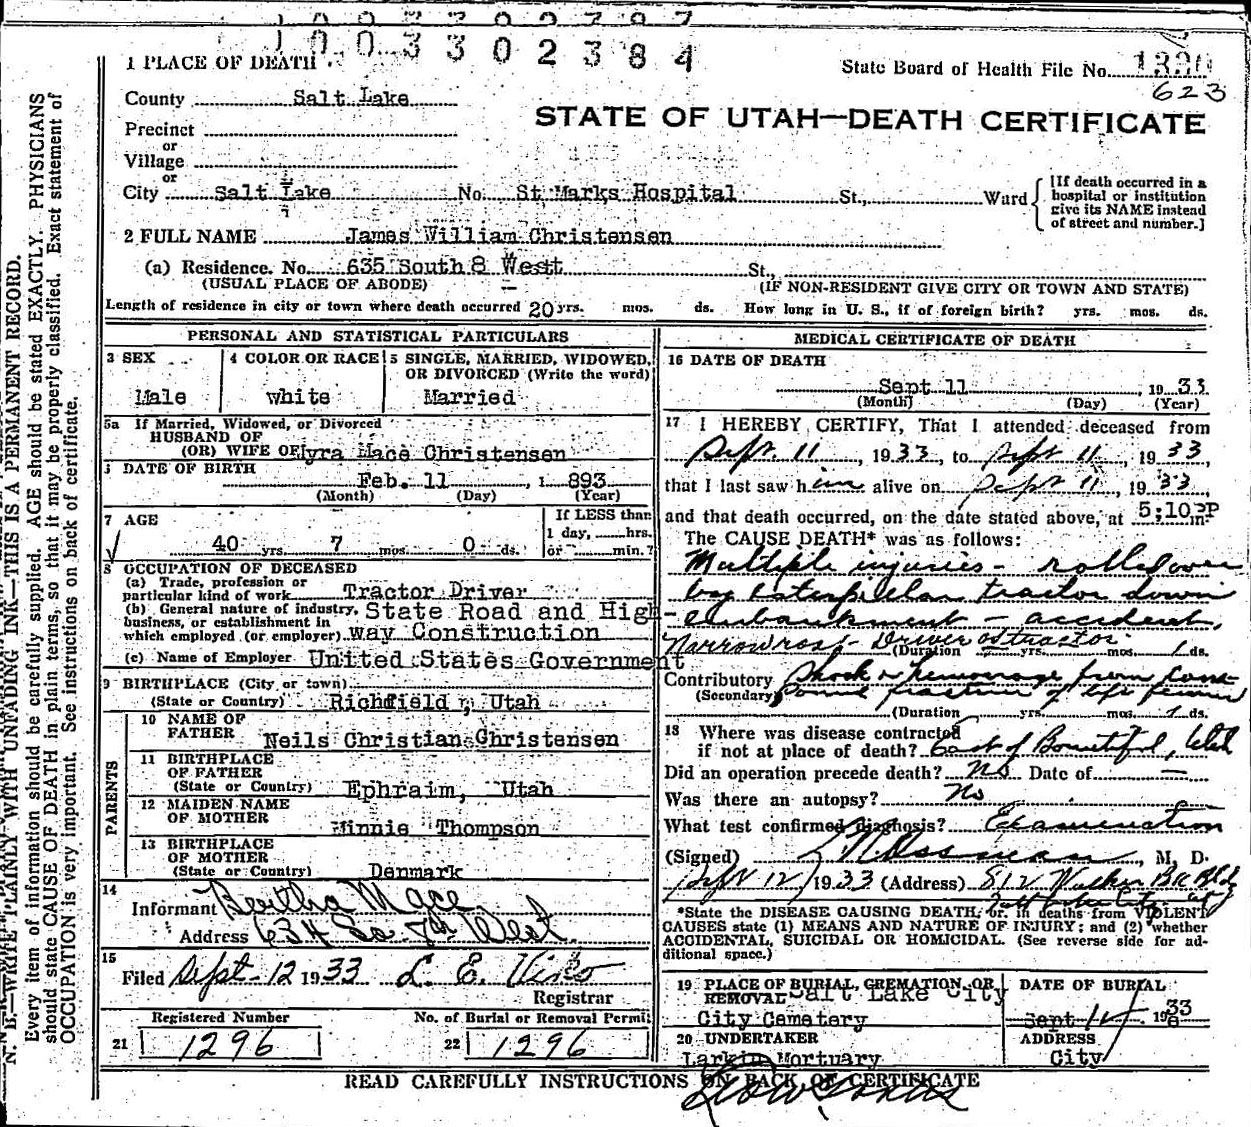 1003302384
1 PLACE OF DEATH
State Board of Health File No. 1320
623
County Salt Lake
STATE OF UTAH—DEATH CERTIFICATE
Precinct
or
Village
or
City Salt Lake No. St Marks Hospital St., Ward
[If death occurred in a
hospital or institution
give its NAME instead
of street and number.]
2 FULL NAME James William Christensen
(a) Residence. No. 635 South 8 West St.,
(USUAL PLACE OF ABODE) (IF NON-RESIDENT GIVE CITY OR TOWN AND STATE)
Length of residence in city or town where death occurred 20 yrs. mos. ds. How long in U. S., if of foreign birth? yrs. mos. ds.
PERSONAL AND STATISTICAL PARTICULARS
3 SEX 4 COLOR OR RACE 5 SINGLE, MARRIED, WIDOWED,
OR DIVORCED (Write the word)
Male white Married
5a If Married, Widowed, or Divorced
HUSBAND OF
(OR) WIFE OF Myra Mace Christensen
DATE OF BIRTH
Feb. 11, 1893
(Month) (Day) (Year)
7 AGE
If LESS than
1 day, hrs.
40 yrs. 7 mos. 0 ds. or min.?
8 OCCUPATION OF DECEASED
(a) Trade, profession or
particular kind of work Tractor Driver
(b) General nature of industry,
business, or establishment in
which employed (or employer) State Road and High-
way Construction
(c) Name of Employer United States Government
9 BIRTHPLACE (City or town)
(State or Country) Richfield, Utah
PARENTS
10 NAME OF
FATHER Neils Christian Christensen
11 BIRTHPLACE
OF FATHER
(State or Country) Ephraim, Utah
12 MAIDEN NAME
OF MOTHER Minnie Thompson
13 BIRTHPLACE
OF MOTHER
(State or Country) Denmark
14
Informant Bertha Mace
Address 634 So. 8th West
15
Filed Sept-12 1933 L. E.
Registrar
Registered Number No. of Burial or Removal Permit
21 1296 22 1296
MEDICAL CERTIFICATE OF DEATH
16 DATE OF DEATH
Sept 11, 1933
(Month) (Day) (Year)
17 I HEREBY CERTIFY, That I attended deceased from
Sept. 11, 1933, to Sept 11, 1933,
that I last saw him alive on Sept 11, 1933,
and that death occurred, on the date stated above, at 5:10 P m
The CAUSE DEATH* was as follows:
Multiple injuries - rolled over
by Caterpillar tractor down
embankment - accident.
Narrow road - Driver of tractor
(Duration yrs. mos. 1 ds.
Contributory Shock & Hemorrage from Com-
(Secondary) pound fracture of left femur
(Duration yrs. mos. 1 ds.
18 Where was disease contracted
if not at place of death? East of Bountiful, Utah
Did an operation precede death? No Date of —
Was there an autopsy? No
What test confirmed diagnosis? Examination
(Signed) , M. D.
Sept 12, 1933 (Address) 812 Walker Bk Bldg
Salt Lake City
*State the DISEASE CAUSING DEATH, or, in deaths from VIOLENT
CAUSES state (1) MEANS AND NATURE OF INJURY; and (2) whether
ACCIDENTAL, SUICIDAL OR HOMICIDAL. (See reverse side for ad-
ditional space.)
19 PLACE OF BURIAL, CREMATION, OR
REMOVAL Salt Lake City
City Cemetery
DATE OF BURIAL
Sept 14 1933
20 UNDERTAKER ADDRESS
Larkin Mortuary City
READ CAREFULLY INSTRUCTIONS ON BACK OF CERTIFICATE
N. B.—WRITE PLAINLY WITH UNFADING INK—THIS IS A PERMANENT RECORD.
Every item of information should be carefully supplied. AGE should be stated EXACTLY. PHYSICIANS
should state CAUSE OF DEATH in plain terms, so that it may be properly classified. Exact statement of
OCCUPATION is very important. See instructions on back of certificate.